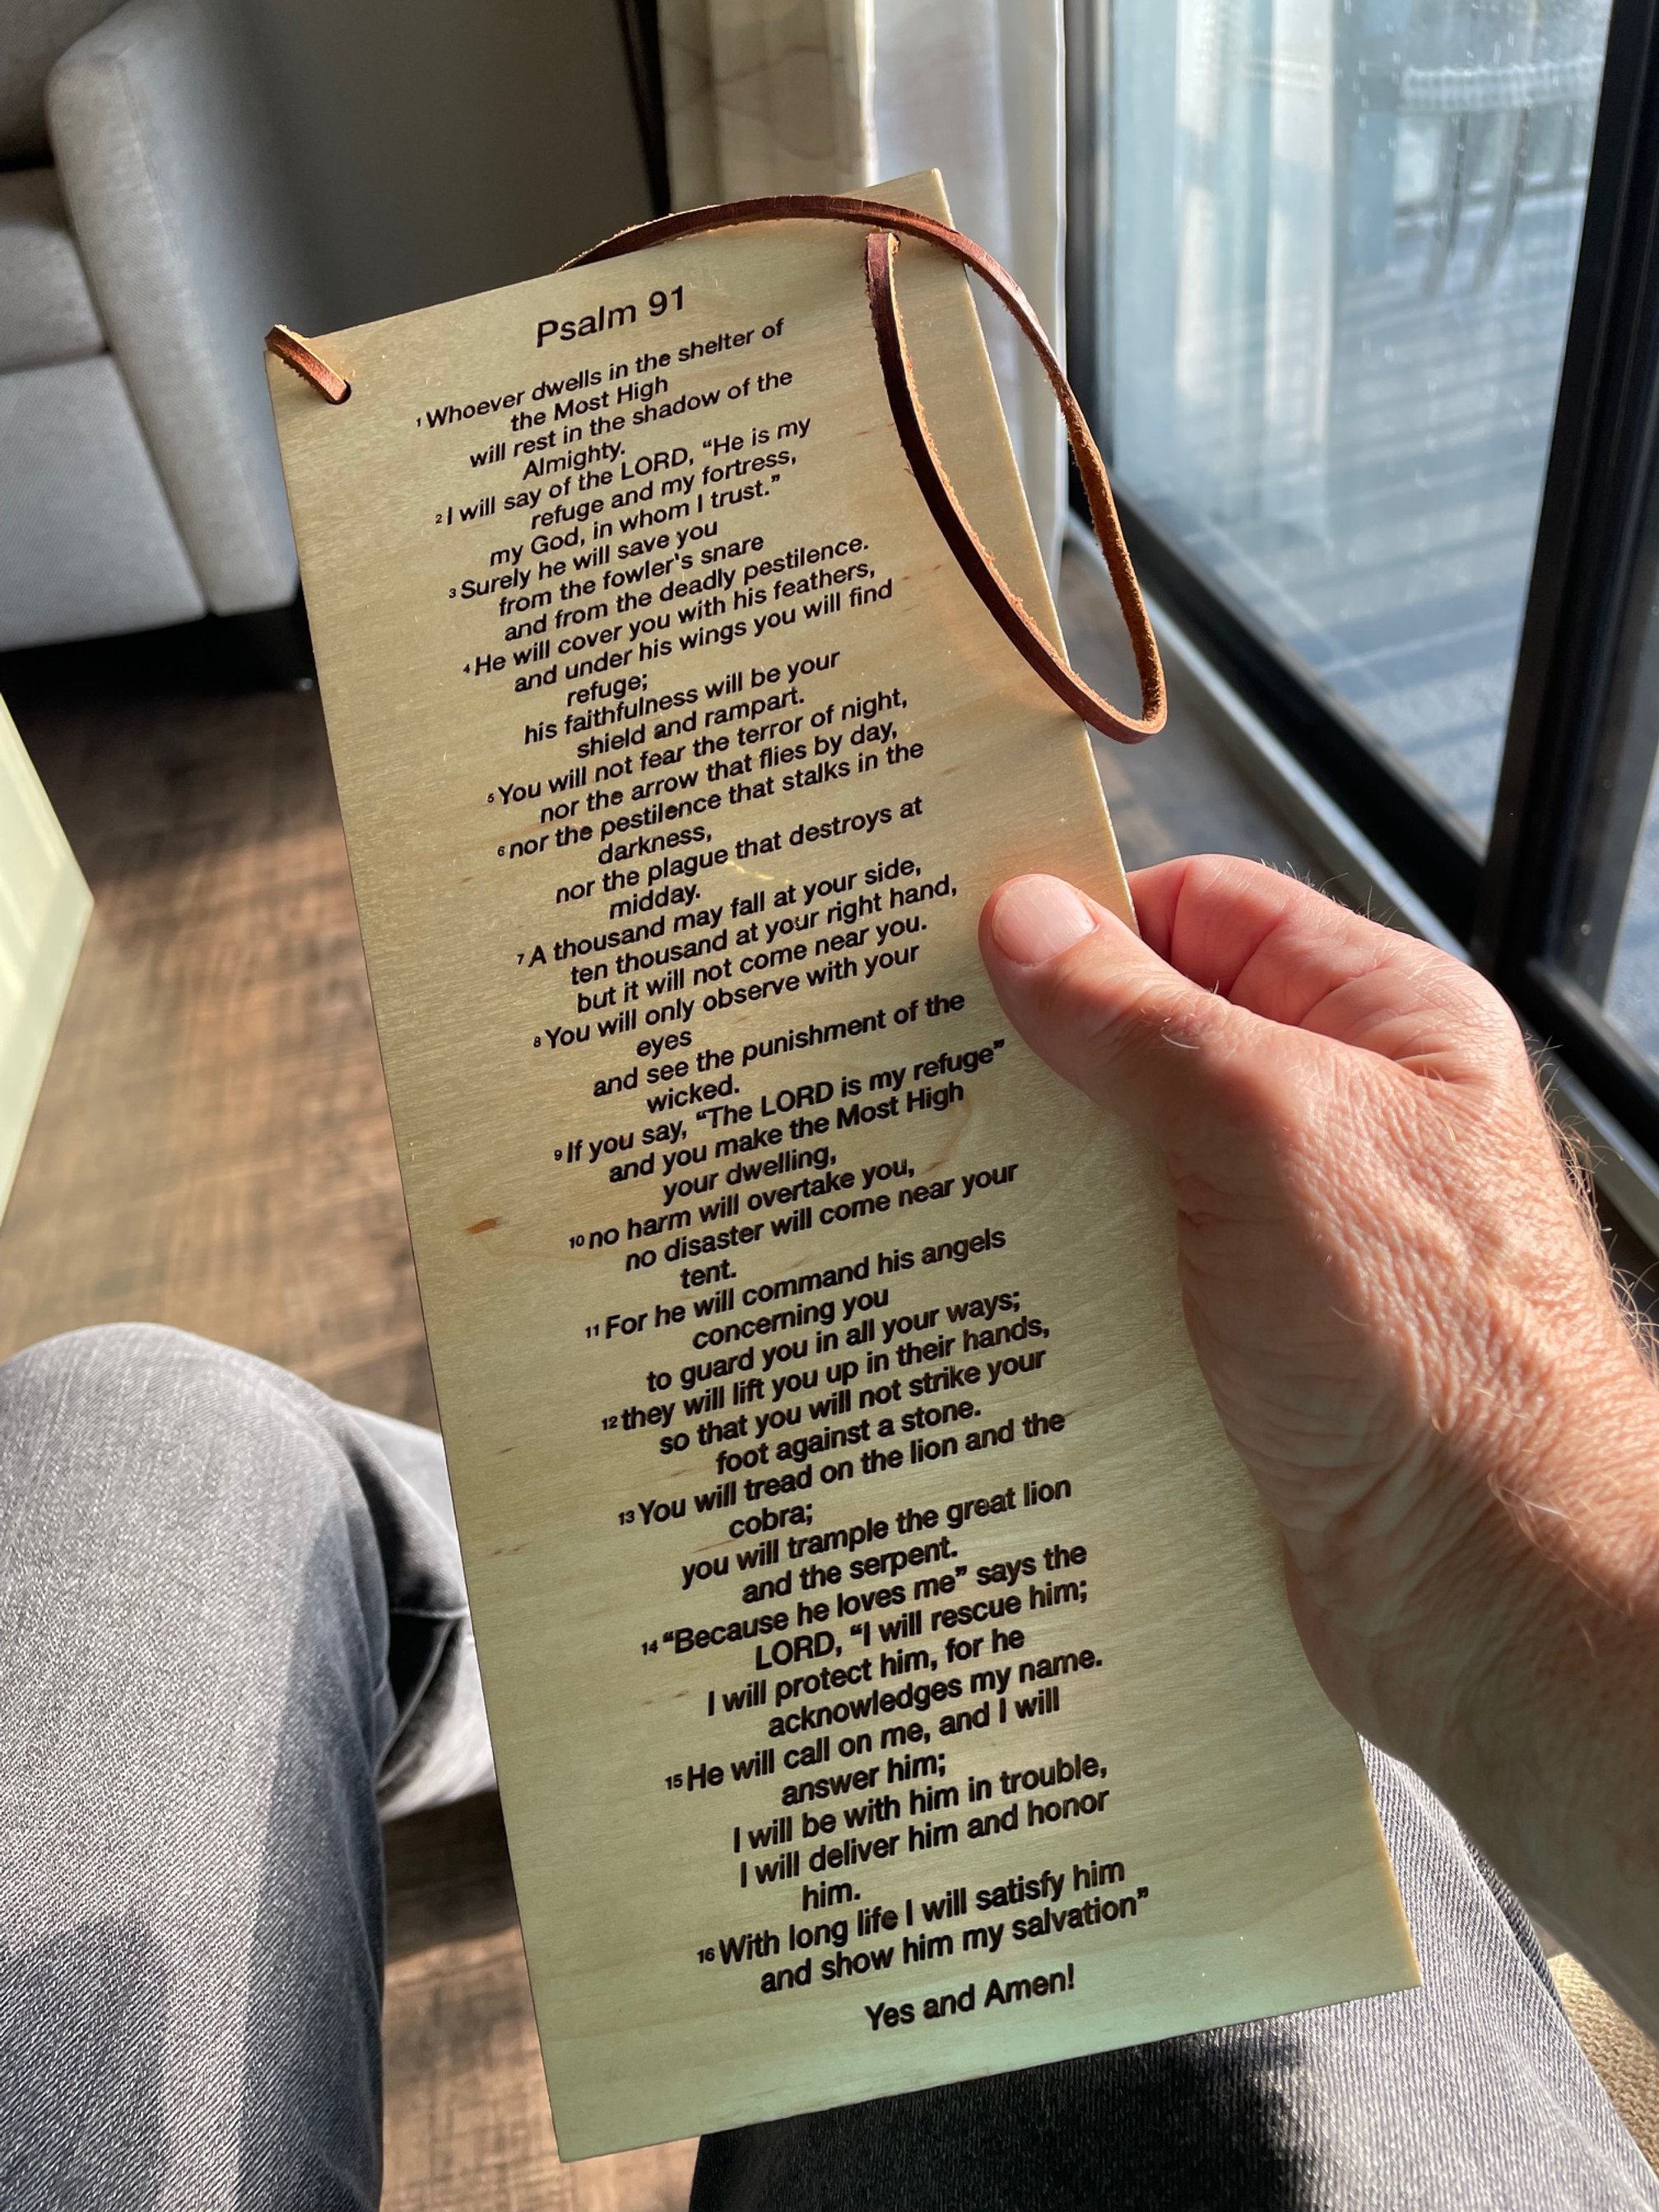 Psalm 91
1 Whoever dwells in the shelter of
the Most High
will rest in the shadow of the
Almighty.
2 I will say of the LORD, “He is my
refuge and my fortress,
my God, in whom I trust.”
3 Surely he will save you
from the fowler's snare
and from the deadly pestilence.
4 He will cover you with his feathers,
and under his wings you will find
refuge;
his faithfulness will be your
shield and rampart.
5 You will not fear the terror of night,
nor the arrow that flies by day,
6 nor the pestilence that stalks in the
darkness,
nor the plague that destroys at
midday.
7 A thousand may fall at your side,
ten thousand at your right hand,
but it will not come near you.
8 You will only observe with your
eyes
and see the punishment of the
wicked.
9 If you say, “The LORD is my refuge”
and you make the Most High
your dwelling,
10 no harm will overtake you,
no disaster will come near your
tent.
11 For he will command his angels
concerning you
to guard you in all your ways;
12 they will lift you up in their hands,
so that you will not strike your
foot against a stone.
13 You will tread on the lion and the
cobra;
you will trample the great lion
and the serpent.
14 “Because he loves me” says the
LORD, “I will rescue him;
I will protect him, for he
acknowledges my name.
15 He will call on me, and I will
answer him;
I will be with him in trouble,
I will deliver him and honor
him.
16 With long life I will satisfy him
and show him my salvation”
Yes and Amen!